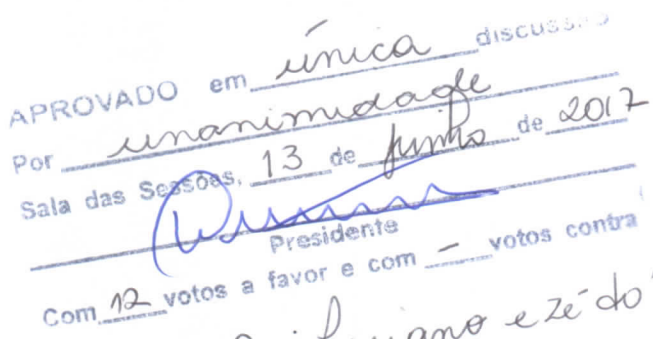 APROVADO em única discussão
Por unanimidade
Sala das Sessões, 13 de junho de 2017
Presidente
Com 12 votos a favor e com - votos contra
e Zé do